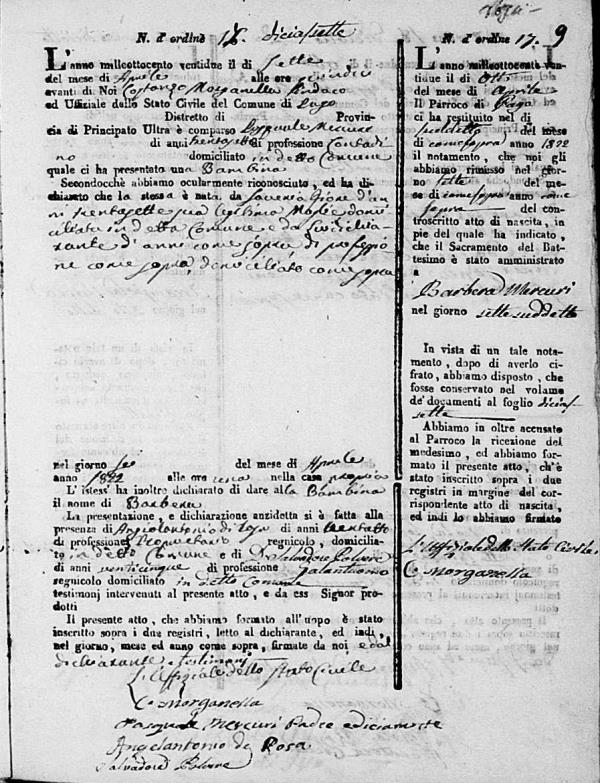 N. d'ordine 17. diciasette
L'anno millcottocento ventidue il di sette
del mese di Aprile alle ore quindici
avanti di Noi Costanzo Morganella Sindaco
ed Uffiziale dello Stato Civile del Comune di Lago
Distretto di Provin-
cia di Principato Ultra è comparso Pasquale Mercuri
di anni trentasette di professione Contadi
no domiciliato in detto Comune
quale ci ha presentato una Bambina
Secondocchè abbiamo ocularmente riconosciuto, ed ha di-
chiarato che la stessa è nata da Saveria d'an
ni trentasette sua legitima Moglie domi
ciliata in detta Comune e da lui dichia
rante d'anni come sopra di professio
ne come sopra, domiciliato come sopra
nel giorno sei del mese di Aprile
anno 1822 alle ore una nella casa propria
L'istess' ha inoltre dichiarato di dare alla Bambina
il nome di Barbera
La presentazione, e dichiarazione anzidetta si è fatta alla
presenza di Angiolantonio di Rosa di anni trentotto
di professione Proprietario regnicolo, domicilia-
to in detto Comune e di D. Salvadore
di anni venticinque di professione galantuomo
regnicolo domiciliato in detto Comune
testimoni intervenuti al presente atto, e da ess Signor pro-
dotti
Il presente atto, che abbiamo formato all'uopo è stato
inscritto sopra i due registri, letto al dichiarante, ed indi,
nel giorno, mese ed anno come sopra, firmate da noi e dal
dichiarante e testimonj
L'Uffiziale dello Stato Civile
C. Morganella
Pasquale Mercuri Padre e diciarante
Angelantonio de Rosa
Salvadore
N. d'ordine 17. 9
L'anno millcottocento ven-
tidue il di Otto
del mese di Aprile
Il Parroco di Lago
ci ha restituito nel di
suddetto del mese
di come sopra anno 1822
il notamento, che noi gli
abbiamo rimesso nel gior-
no sette del me-
se di come sopra anno come
sopra del con-
troscritto atto di nascita, in
piè del quale ha indicato,
che il Sacramento del Bat-
tesimo è stato amministrato
a
Barbera Mercuri
nel giorno sette suddetto
In vista di un tale nota-
mento, dopo di averlo ci-
frato, abbiamo disposto, che
fosse conservato nel volume
de' documenti al foglio dicias
sette
Abbiamo in oltre accusato
al Parroco la ricezione del
medesimo, ed abbiamo for-
mato il presente atto, ch'è
stato inscritto sopra i due
registri in margine del cor-
rispondente atto di nascita,
ed indi lo abbiamo firmato
L'Uffiziale dello Stato Civile
C. Morganella